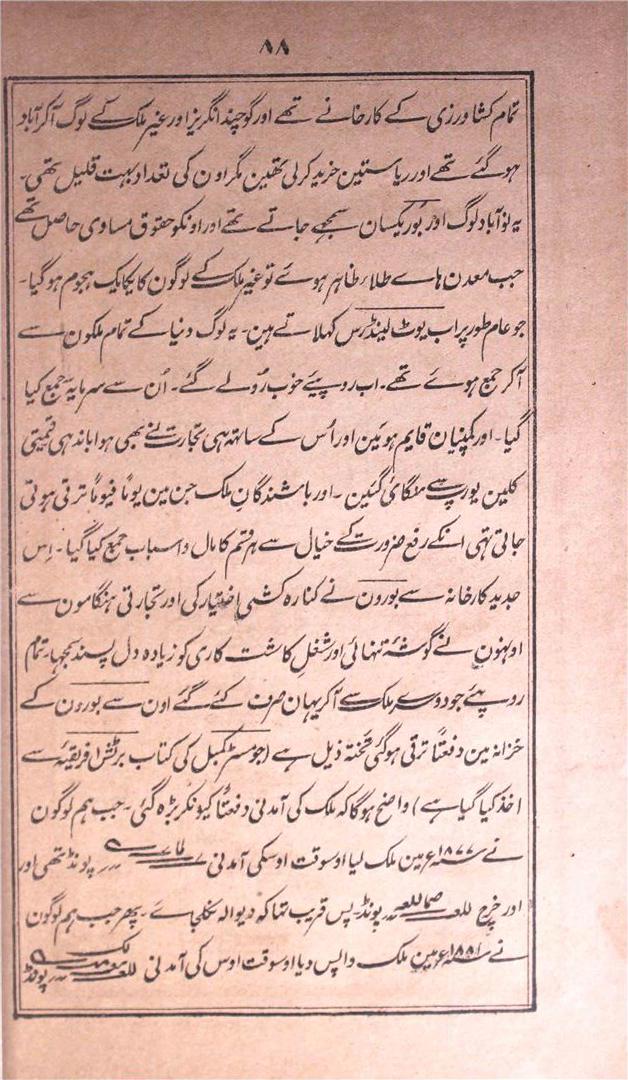 ۸۸
تمام کشاورزی کے کارخانے تھے اور گو چند انگریز اور غیر ملک کے لوگ آکر آباد
ہوگئے تھے اور ریاستین خرید کر لی تھین مگر اون کی تعداد بہت قلیل تھی۔
یہ نوآباد لوگ اور بُور یکسان سمجھے جاتے تھے اور اونکو حقوق مساوی حاصل تھے
جب معدن ہاے طلا ظاہر ہوئے تو غیر ملک کے لوگون کا یکایک ہجوم ہوگیا۔
جو عام طور پر اب یوٹ لینڈرس کہلاتے ہین۔ یہ لوگ دنیا کے تمام ملکون سے
آکر جمع ہوئے تھے۔ اب روپیئے خوب رُولے گئے۔ اُن سے سرمایہ جمع کیا
گیا۔ اور کمپنیان قایم ہوئین اور اُس کے ساتہہ ہی تجارت نے بھی ہوا باندہی قیمتی
کلین یورپ سے منگائی گئین۔ اور باشندگانِ ملک جن مین یوماً فیوماً ترقی ہوتی
جاتی تہی انکے رفع ضرورت کے خیال سے ہر قسم کا مال و اسباب جمع کیا گیا۔ اِس
جدید کارخانہ سے بورون نے کنارہ کشی اختیار کی اور تجارتی ہنگامون سے
اونہون نے گوشۂ تنہائی اور شغل کاشت کاری کو زیادہ دل پسند سمجہا۔ تمام
روپیئے جو دوسرے ملک سے آکر یہان صرف کئے گئے اون سے بورون کے
خزانہ مین دفعتاً ترقی ہوگئی تختہ ذیل سے (جو مسٹر کمبل کی کتاب برٹش افریقہ سے
اخذ کیا گیا ہے) واضح ہوگا کہ ملک کی آمدنی دفعتاً کیونکر بڑہ گئی۔ جب ہم لوگون
نے سنہ ۱۸۷۷ء مین ملک لیا اوسوقت اوسکی آمدنی پونڈ تھی اور
اور خرچ پونڈ پس قریب تہا کہ دیوالہ نکلجاے۔ پھر جب ہم لوگون
نے سنہ ۱۸۸۱ء مین ملک واپس دیا اوسوقت اوس کی آمدنی پونڈ